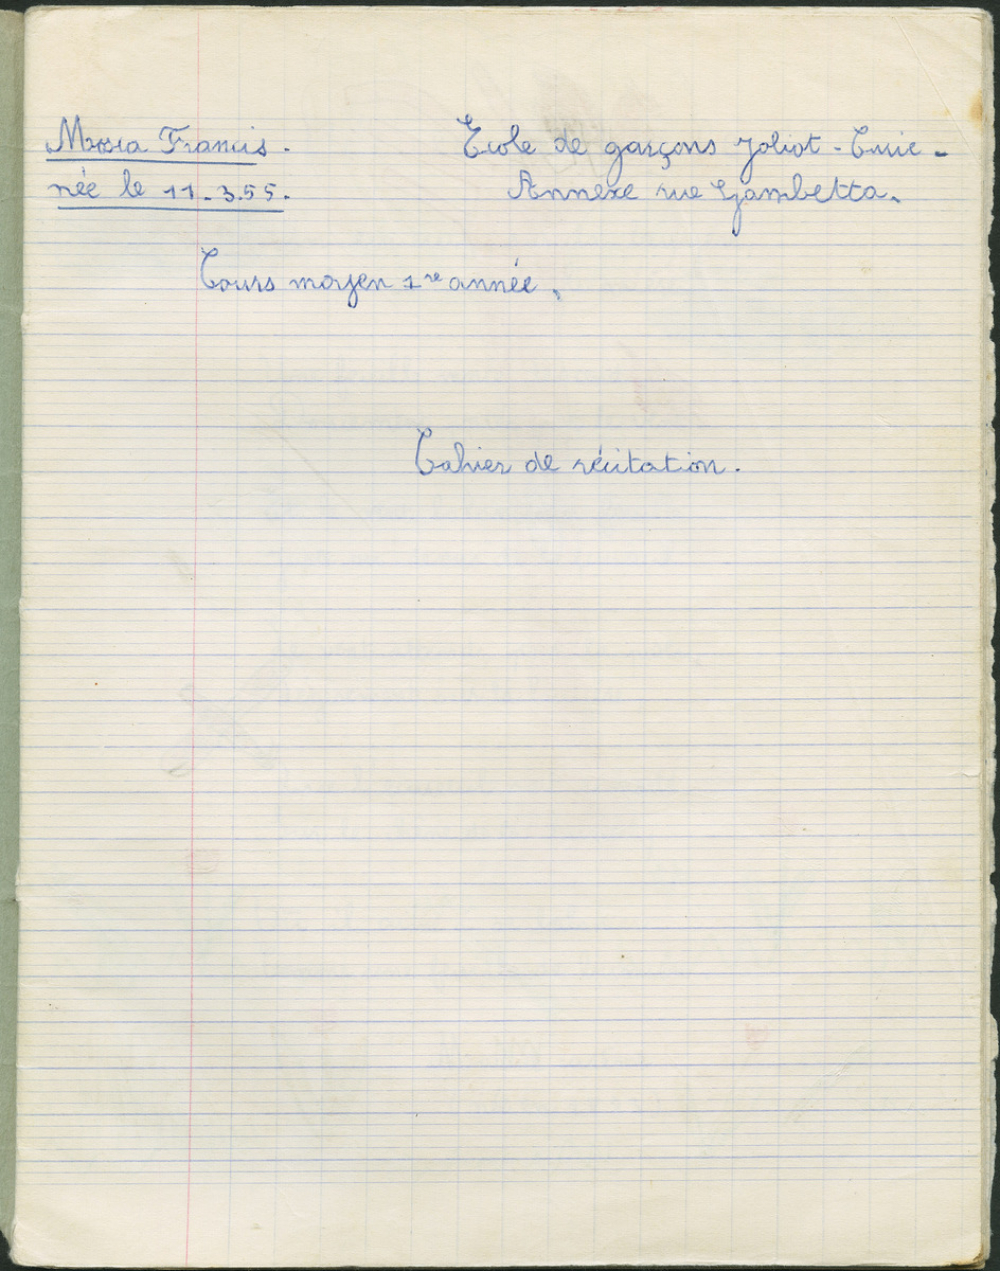 Francis.
née le 11.3.55.
Ecole de garçons Joliot-Curie.
Annexe rue Gambetta.
Cours moyen 1re année.
Cahier de récitation.